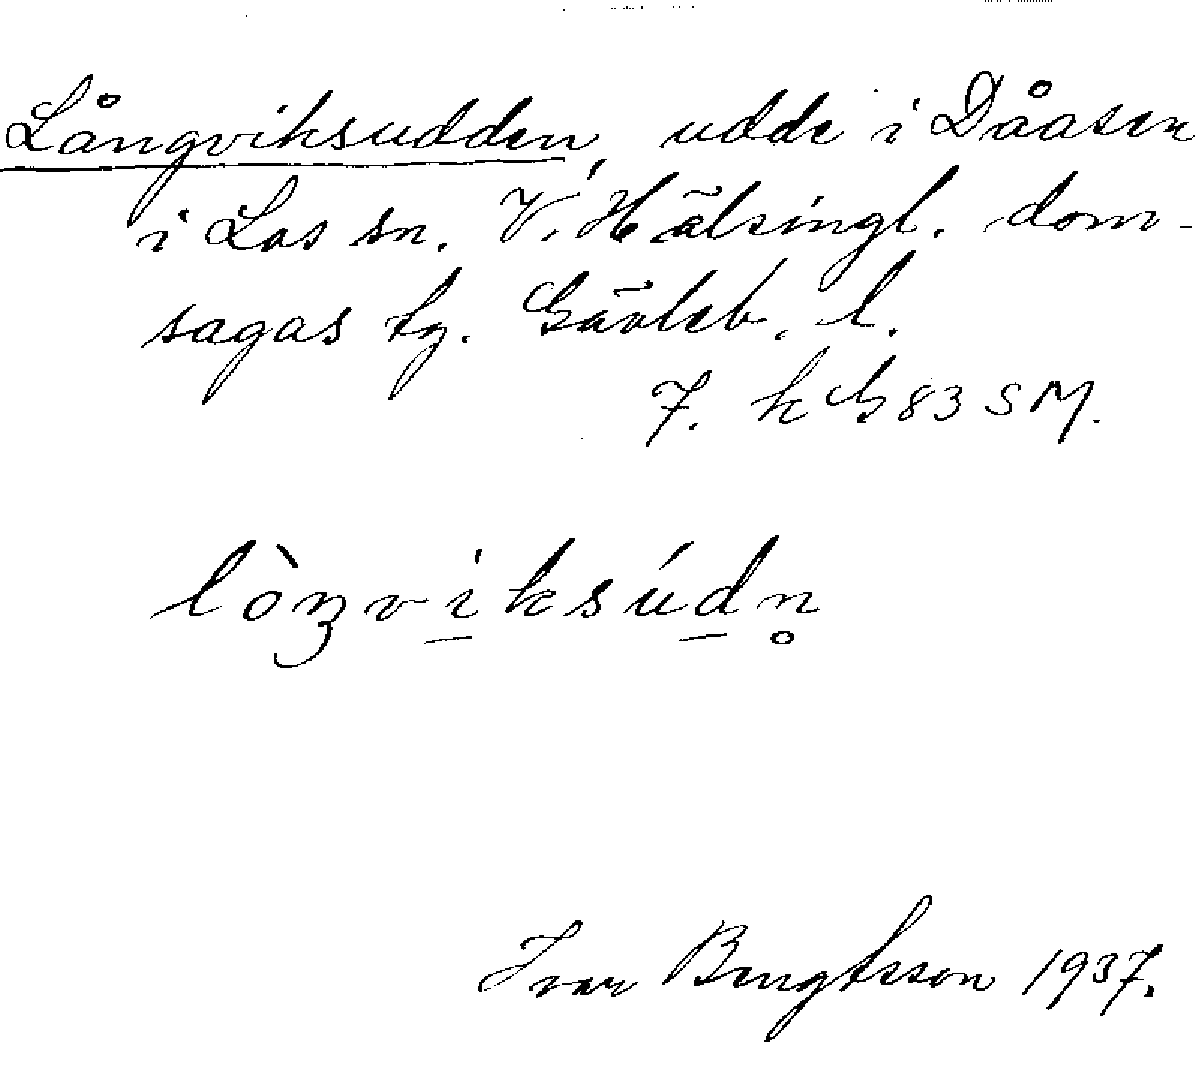 Långviksudden, udde i Dåasen
i Los sn. V. Hälsingl. dom-
sagas tg. Gävleb. l.
7. k G 83 SM.
lòŋviksúdn̥
Ivar Bengtsson 1937.